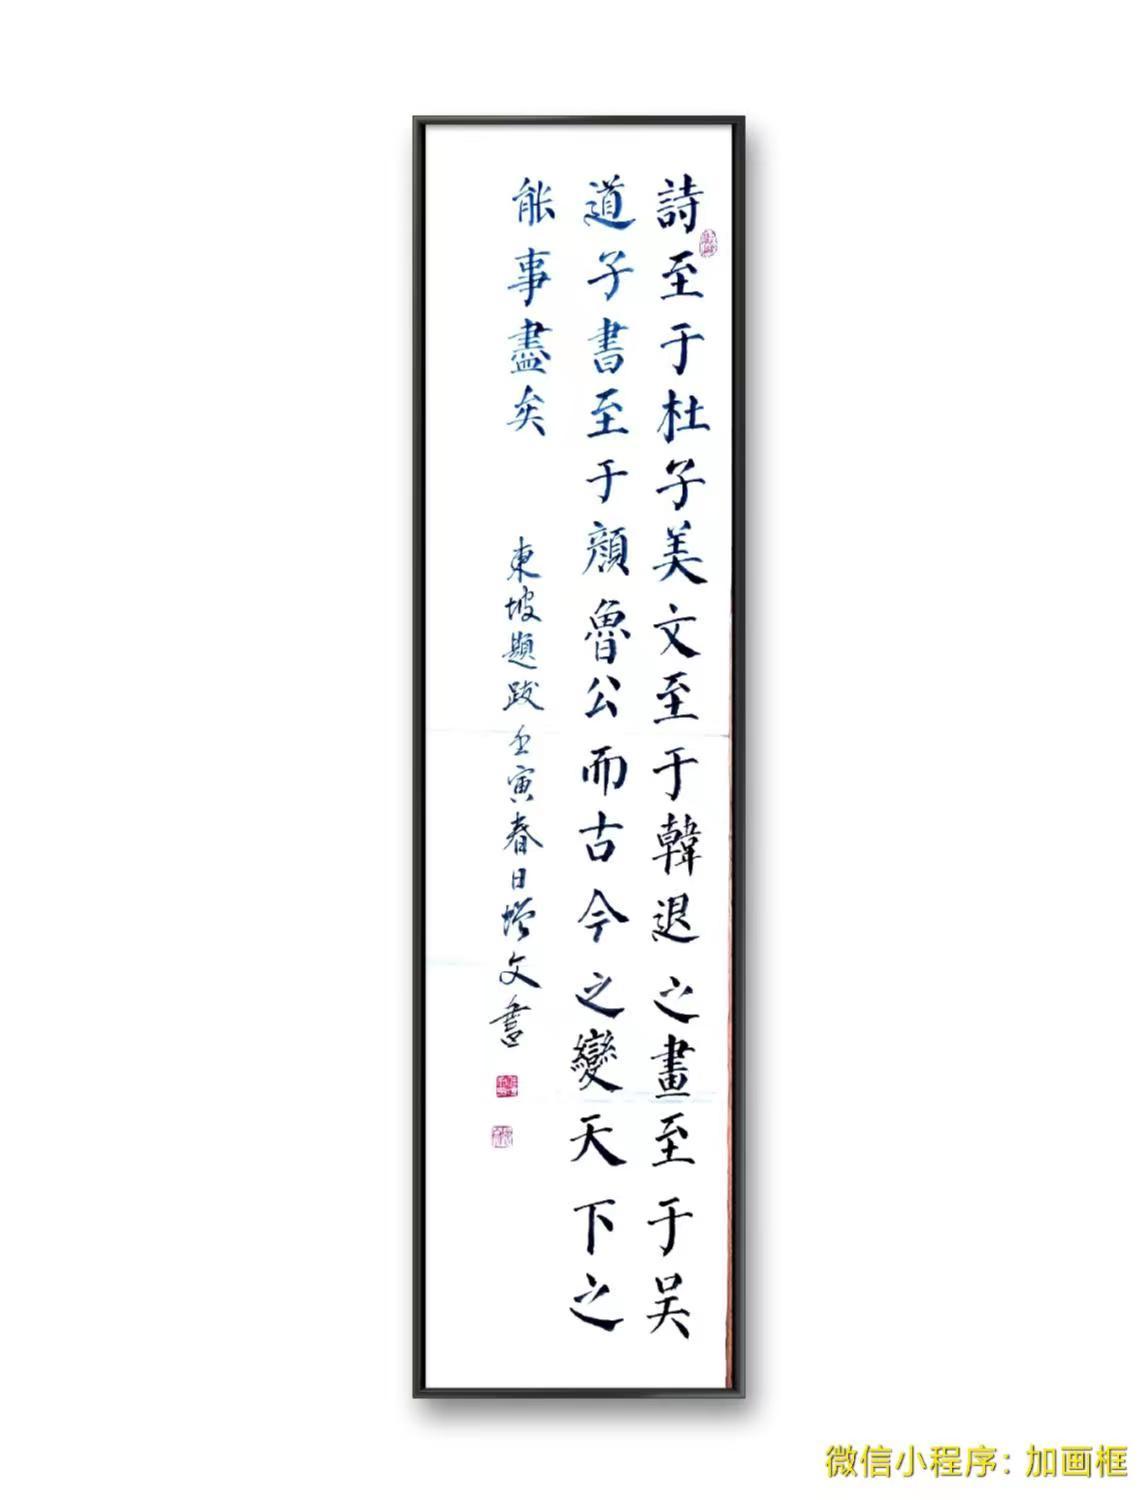 詩至于杜子美文至于韓退之畫至于吴
道子書至于顔魯公而古今之變天下之
能事盡矣
東坡題跋壬寅春日增文書
微信小程序：加画框